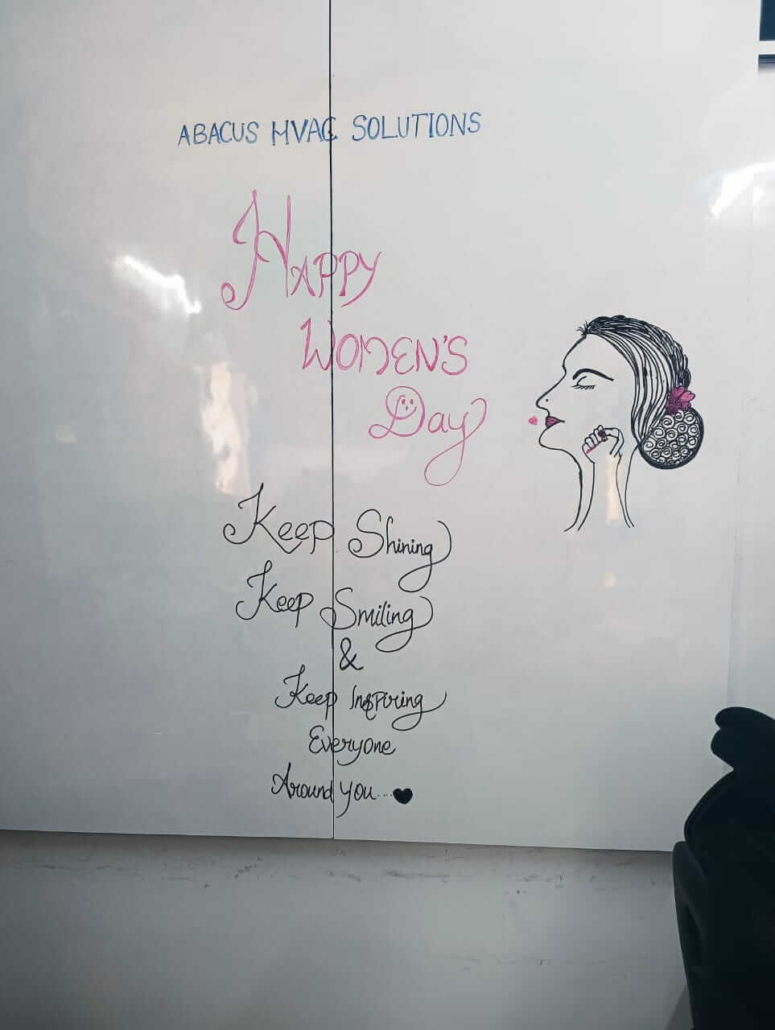 ABACUS HVAC SOLUTIONS
HAPPY
WOMEN'S
Day
Keep Shining
Keep Smiling
&
Keep Inspiring
Everyone
Around you...